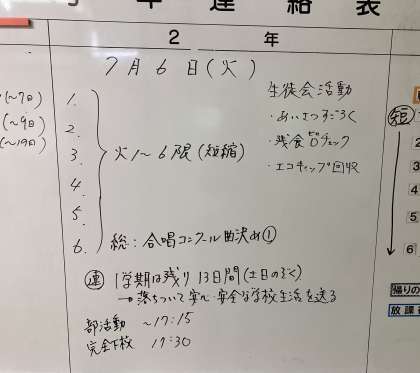 学年連絡表
2 年
7月6日(火)
1.
2.
3.
4.
5.
6.
火1〜6限(短縮)
総:合唱コンクール曲決め①
生徒会活動
・あいさつすごろく
・残食ゼロチェック
・エコキャップ回収
(〜7日)
(〜9日)
(〜19日)
連 1学期は残り13日間(土日のぞく)
→落ちついて安心・安全な学校生活を送る
部活動 〜17:15
完全下校 17:30
短
2
3
4
5
6
帰りの
放課